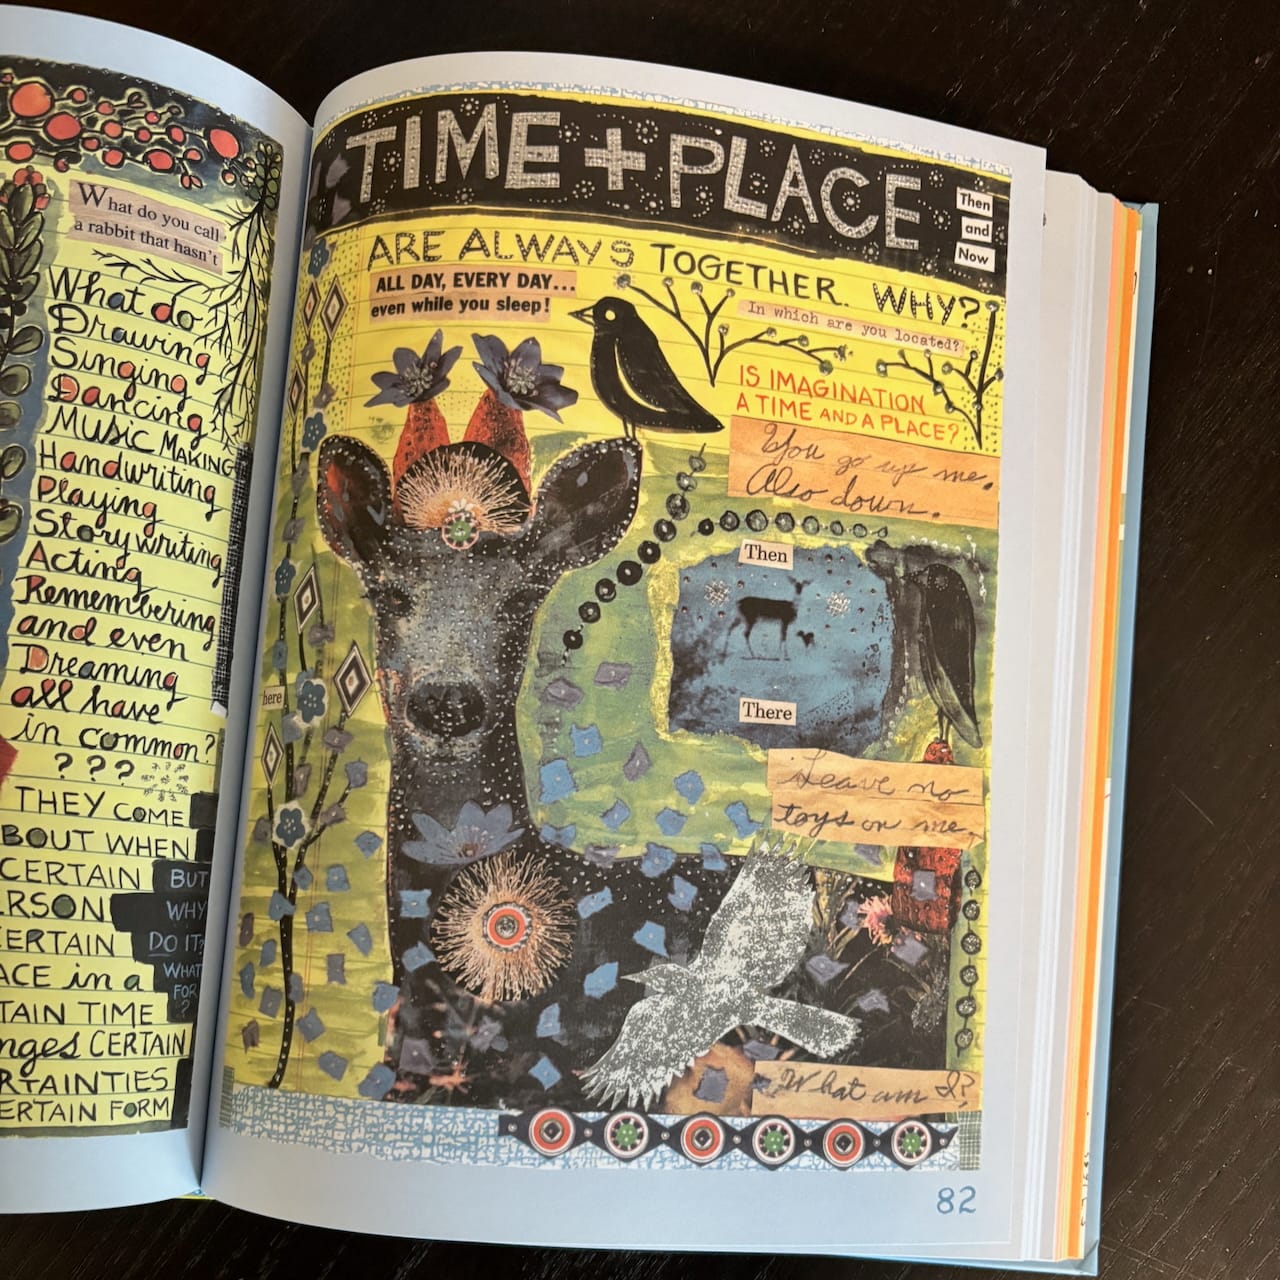 What do you call
a rabbit that hasn't
What do
Drawing
Singing
Dancing
Music Making
Handwriting
Playing
Story writing
Acting
Remembering
and even
Dreaming
all have
in common?
? ? ?
THEY COME
BOUT WHEN
CERTAIN
RSON
ERTAIN
ACE in a
TAIN TIME
nges CERTAIN
RTAINTIES
ERTAIN FORM
BUT
WHY
DO IT?
WHAT
FOR
?
TIME + PLACE
Then
and
Now
ARE ALWAYS TOGETHER. WHY?
ALL DAY, EVERY DAY...
even while you sleep!
In which are you located?
IS IMAGINATION
A TIME AND A PLACE?
You go up me.
Also down.
Then
There
here
Leave no
toys on me.
What am I?
82